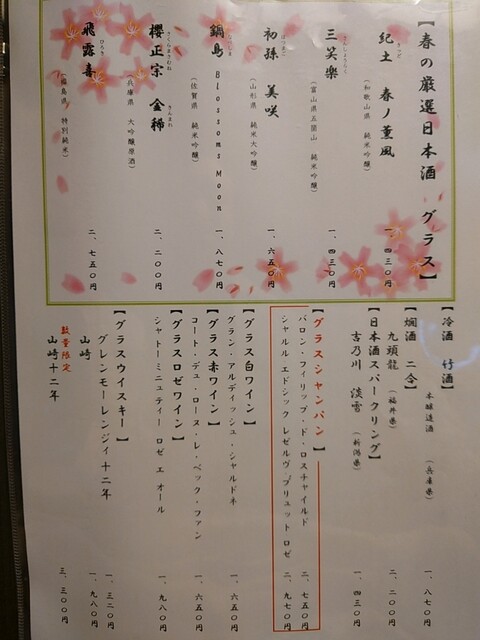 【春の厳選日本酒　グラス】
紀土　春ノ薫風
（和歌山県　純米吟醸）
一、四三〇円
三笑楽
さんしょうらく
（富山県五箇山　純米吟醸）
一、四三〇円
初孫　美咲
（山形県　純米大吟醸）
一、六五〇円
鍋島　Blossoms Moon
なべしま
（佐賀県　純米吟醸）
一、八七〇円
櫻正宗　金稀
さくらまさむね　きんまれ
（兵庫県　大吟醸原酒）
二、二〇〇円
飛露喜
ひろき
（福島県　特別純米）
二、七五〇円
【冷酒　竹酒】
本醸造酒　（兵庫県）
一、八七〇円
【燗酒　二合】
九頭龍　（福井県）
二、二〇〇円
【日本酒スパークリング】
吉乃川　淡雪　（新潟県）
一、四三〇円
【グラスシャンパン】
バロン・フィリップ・ド・ロスチャイルド　二、七五〇円
シャルル エドシック レゼルヴ ブリュット ロゼ　二、九七〇円
【グラス白ワイン】
グラン・アルディッシュ・シャルドネ　一、六五〇円
【グラス赤ワイン】
コート・デュ・ローヌ・レ・ベック・ファン　一、六五〇円
【グラスロゼワイン】
シャトーミニュティー ロゼ エ オール　一、九八〇円
【グラスウイスキー】
グレンモーレンジィ十二年　一、三二〇円
山崎　一、九八〇円
数量限定
山崎十二年　三、三〇〇円